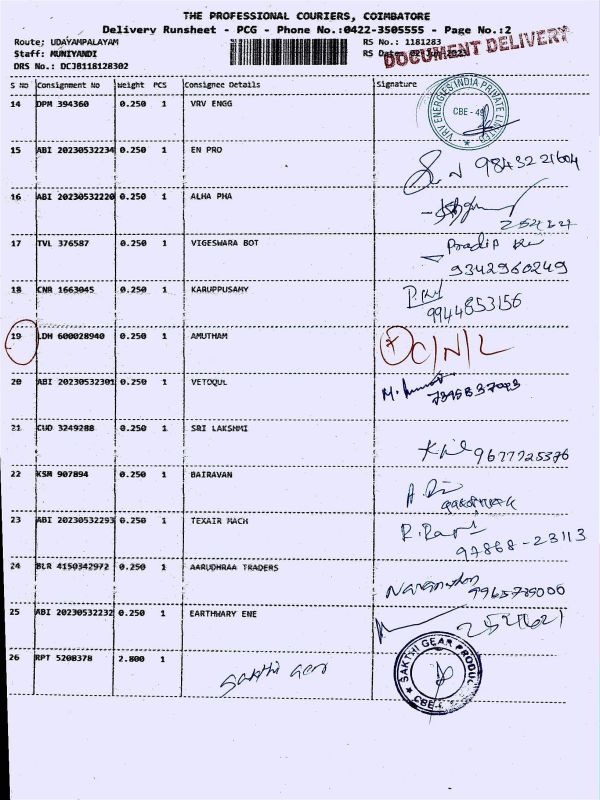 THE PROFESSIONAL COURIERS, COIMBATORE
Delivery Runsheet - PCG - Phone No.:0422-3505555 - Page No.:2
Route; UDAYAMPALAYAM RS No.: 1181283
Staff: MUNIYANDI RS Date: 02 Jun 2023
DOCUMENT DELIVERY
DRS No.: DCJB118128302
S No Consignment No Weight PCS Consignee Details Signature
14 DPM 394360 0.250 1 VRV ENGG
VRT ENERGIES INDIA PRIVATE LIMITED
CBE - 49
15 ABI 20230532234 0.250 1 EN PRO
9843221604
16 ABI 20230532220 0.250 1 ALHA PHA
17 TVL 376587 0.250 1 VIGESWARA BOT Pradip
9342960249
18 CNR 1663045 0.250 1 KARUPPUSAMY
9944853156
19 LDH 600028940 0.250 1 AMUTHAM C/N/L
20 ABI 20230532301 0.250 1 VETOQUL
21 CUD 3249288 0.250 1 SRI LAKSHMI
9677725376
22 KSM 907894 0.250 1 BAIRAVAN
23 ABI 20230532293 0.250 1 TEXAIR MACH
97868-23113
24 BLR 4150342972 0.250 1 AARUDHRAA TRADERS
25 ABI 20230532232 0.250 1 EARTHWARY ENE
2521621
26 RPT 5208378 2.800 1
Sakthi Gear
SAKTHI GEAR PRODUC
CBE-